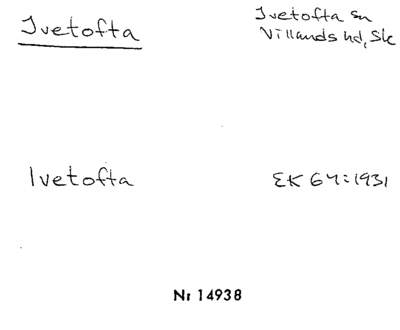 Ivetofta
Ivetofta sn
Villands hd, Sk
Ivetofta
EK 64:1931
Nr 14938